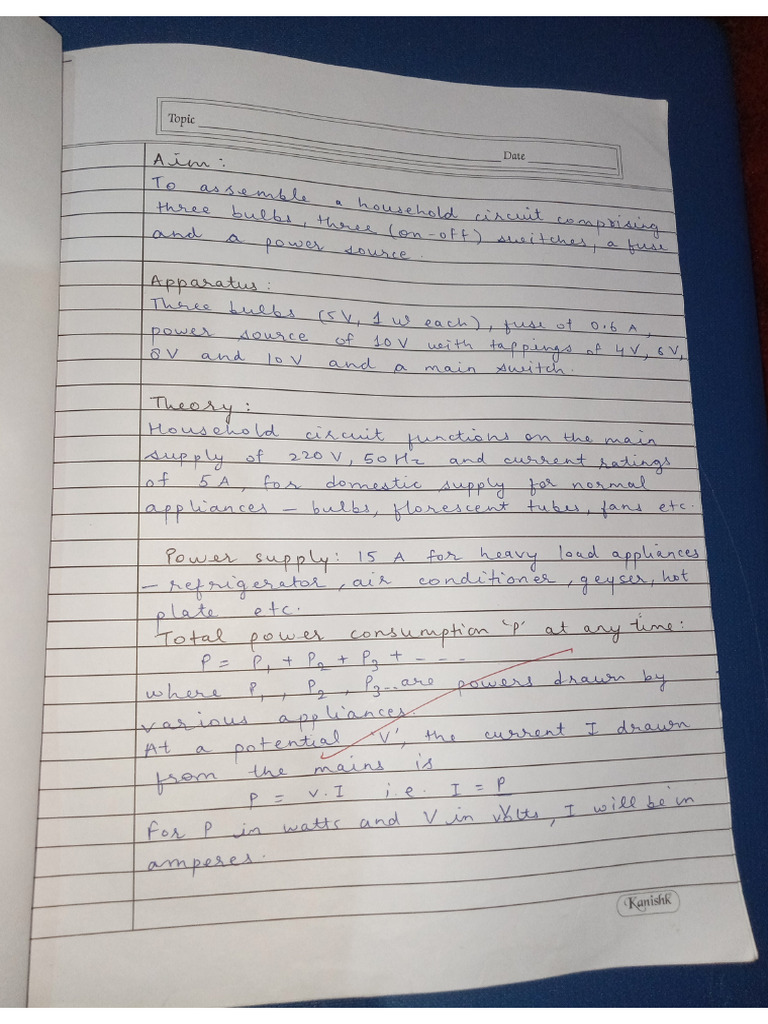 Topic
Date
Aim :
To assemble a household circuit comprising
three bulbs, three (on-off) switches, a fuse
and a power source.
Apparatus :
Three bulbs (5V, 1 W each), fuse of 0.6 A,
power source of 10 V with tappings of 4V, 6V,
8V and 10 V and a main switch.
Theory :
Household circuit functions on the main
supply of 220 V, 50 Hz and current ratings
of 5A, for domestic supply for normal
appliances – bulbs, florescent tubes, fans etc.
Power supply : 15 A for heavy load appliances
– refrigerator, air conditioner, geyser, hot
plate etc.
Total power consumption 'P' at any time :
P = P₁ + P₂ + P₃ + - - - -
where P₁, P₂, P₃... are powers drawn by
various appliances.
At a potential 'V', the current I drawn
from the mains is
P = V.I i.e. I = P/V
For P in watts and V in volts, I will be in
amperes.
Kanishk